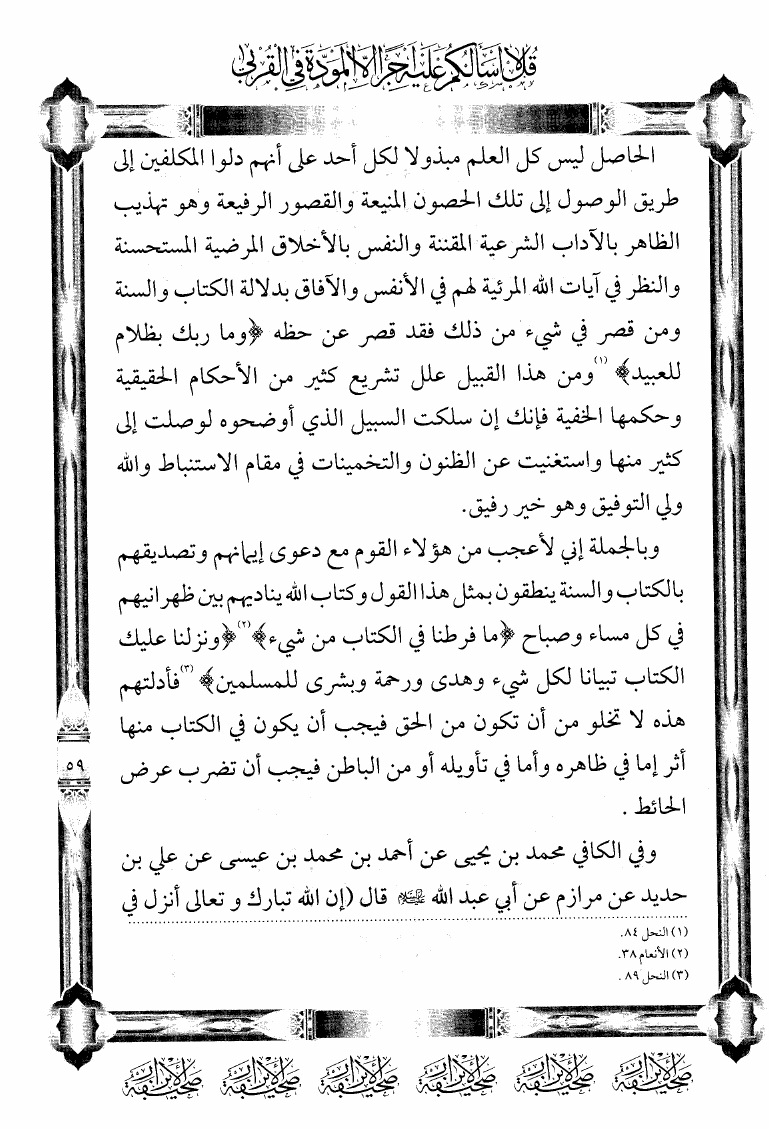 قل لا أسألكم عليه أجرا إلا المودة في القربى
الحاصل ليس كل العلم مبذولا لكل أحد على أنهم دلوا المكلفين إلى
طريق الوصول إلى تلك الحصون المنيعة والقصور الرفيعة وهو تهذيب
الظاهر بالآداب الشرعية المقننة والنفس بالأخلاق المرضية المستحسنة
والنظر في آيات الله المرئية لهم في الأنفس والآفاق بدلالة الكتاب والسنة
ومن قصر في شيء من ذلك فقد قصر عن حظه ﴿وما ربك بظلام
للعبيد﴾(١) ومن هذا القبيل علل تشريع كثير من الأحكام الحقيقية
وحكمها الخفية فإنك إن سلكت السبيل الذي أوضحوه لوصلت إلى
كثير منها واستغنيت عن الظنون والتخمينات في مقام الاستنباط والله
ولي التوفيق وهو خير رفيق.
وبالجملة إني لأعجب من هؤلاء القوم مع دعوى إيمانهم وتصديقهم
بالكتاب والسنة ينطقون بمثل هذا القول وكتاب الله يناديهم بين ظهرانيهم
في كل مساء وصباح ﴿ما فرطنا في الكتاب من شيء﴾(٢) ﴿ونزلنا عليك
الكتاب تبيانا لكل شيء وهدى ورحمة وبشرى للمسلمين﴾(٣) فأدلتهم
هذه لا تخلو من أن تكون من الحق فيجب أن يكون في الكتاب منها
أثر إما في ظاهره وأما في تأويله أو من الباطن فيجب أن تضرب عرض
الحائط .
٥٩
وفي الكافي محمد بن يحيى عن أحمد بن محمد بن عيسى عن علي بن
حديد عن مرازم عن أبي عبد الله عليه السلام قال (إن الله تبارك و تعالى أنزل في
(١) النحل ٨٤.
(٢) الأنعام ٣٨.
(٣) النحل ٨٩ .